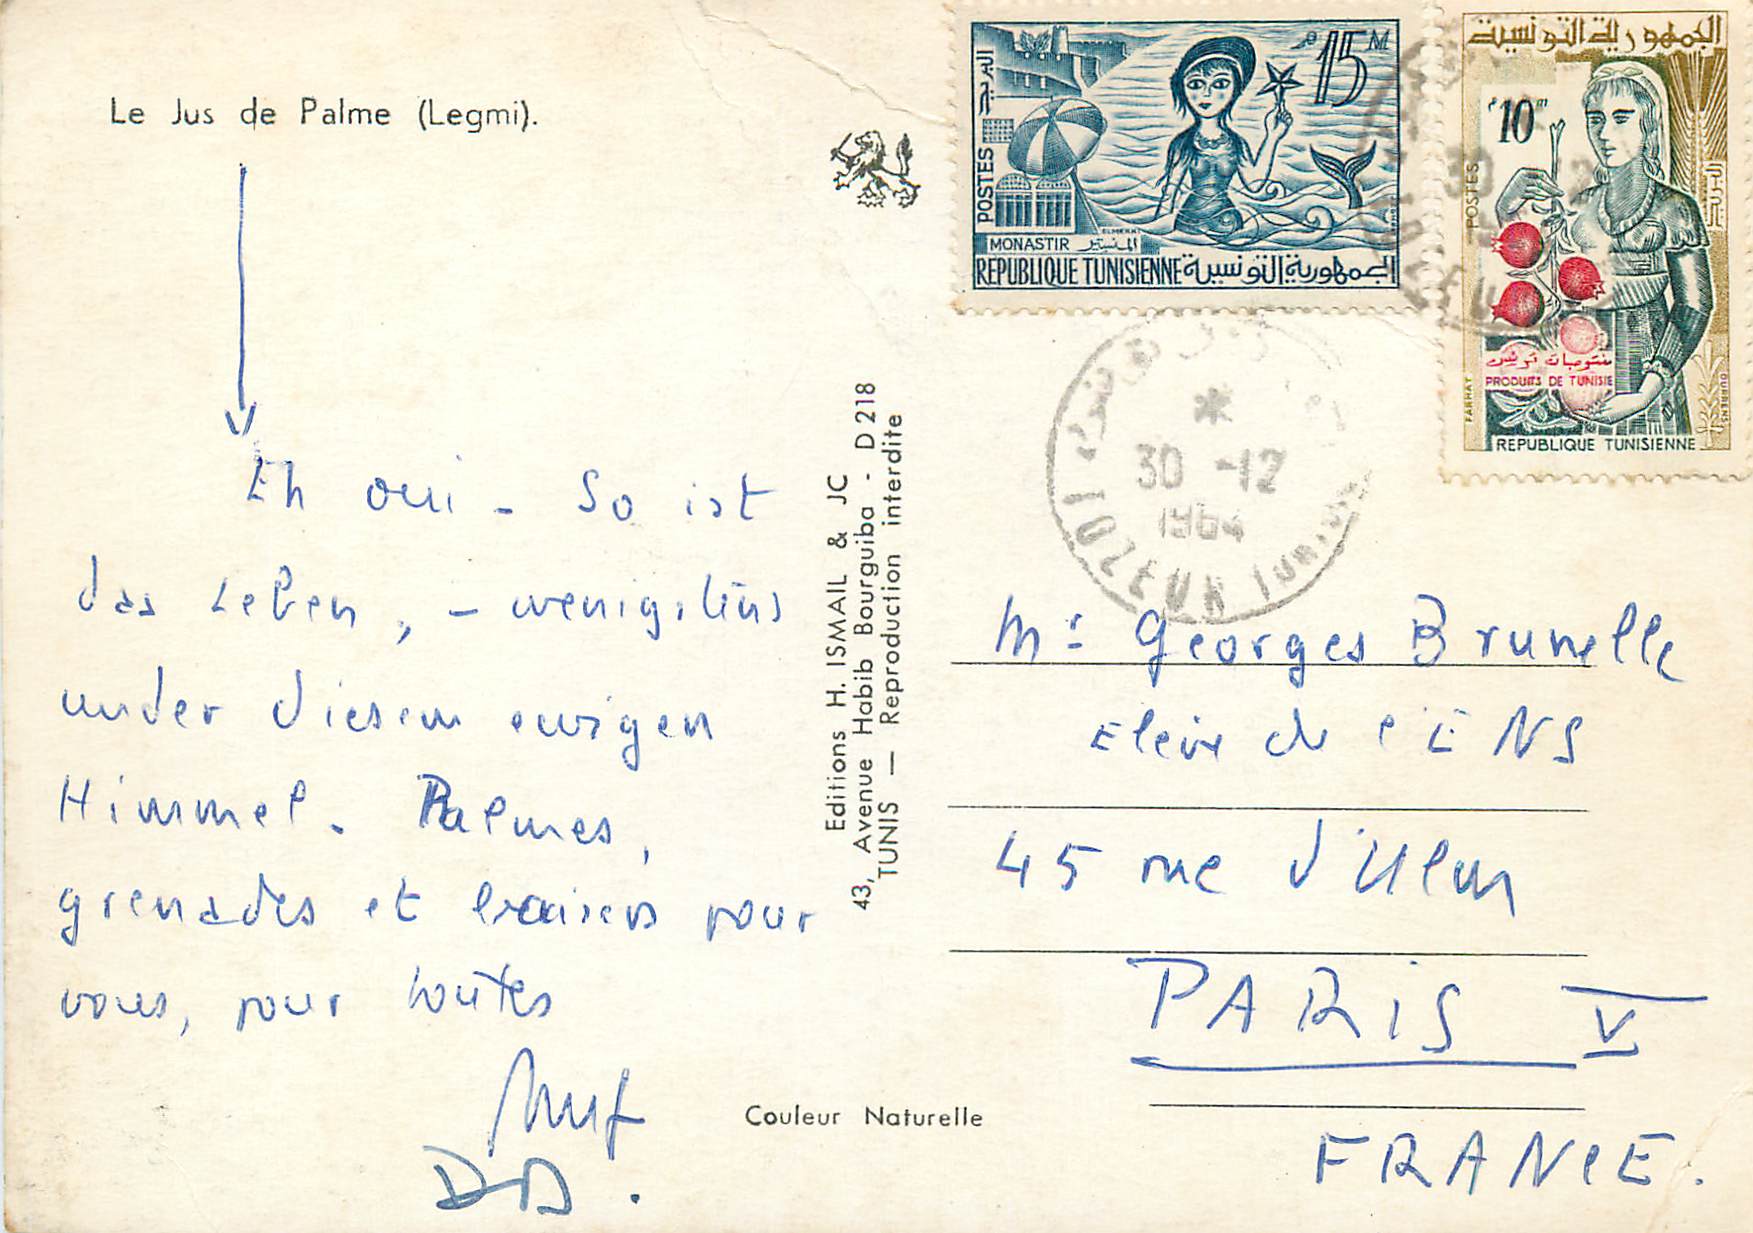 Le Jus de Palme (Legmi).
Eh oui - So ist
das Leben, - wenigstens
under diesem ewigen
Himmel. Palmes,
grenades et baisers pour
vous, pour toutes
DD.
Couleur Naturelle
Editions H. ISMAIL & JC
43, Avenue Habib Bourguiba - D 218
TUNIS — Reproduction interdite
15 M
البريد
POSTES
MONASTIR المنستير
ELMEKKI
REPUBLIQUE TUNISIENNE الجمهورية التونسية
الجمهورية التونسية
10m
POSTES
البريد
منتوجات تونس
PRODUITS DE TUNISIE
FARHAT
REPUBLIQUE TUNISIENNE
30 -12
1964
TOZEUR
Mr Georges Brunelle
Elève de l'ENS
45 rue d'Ulm
PARIS V
FRANCE.